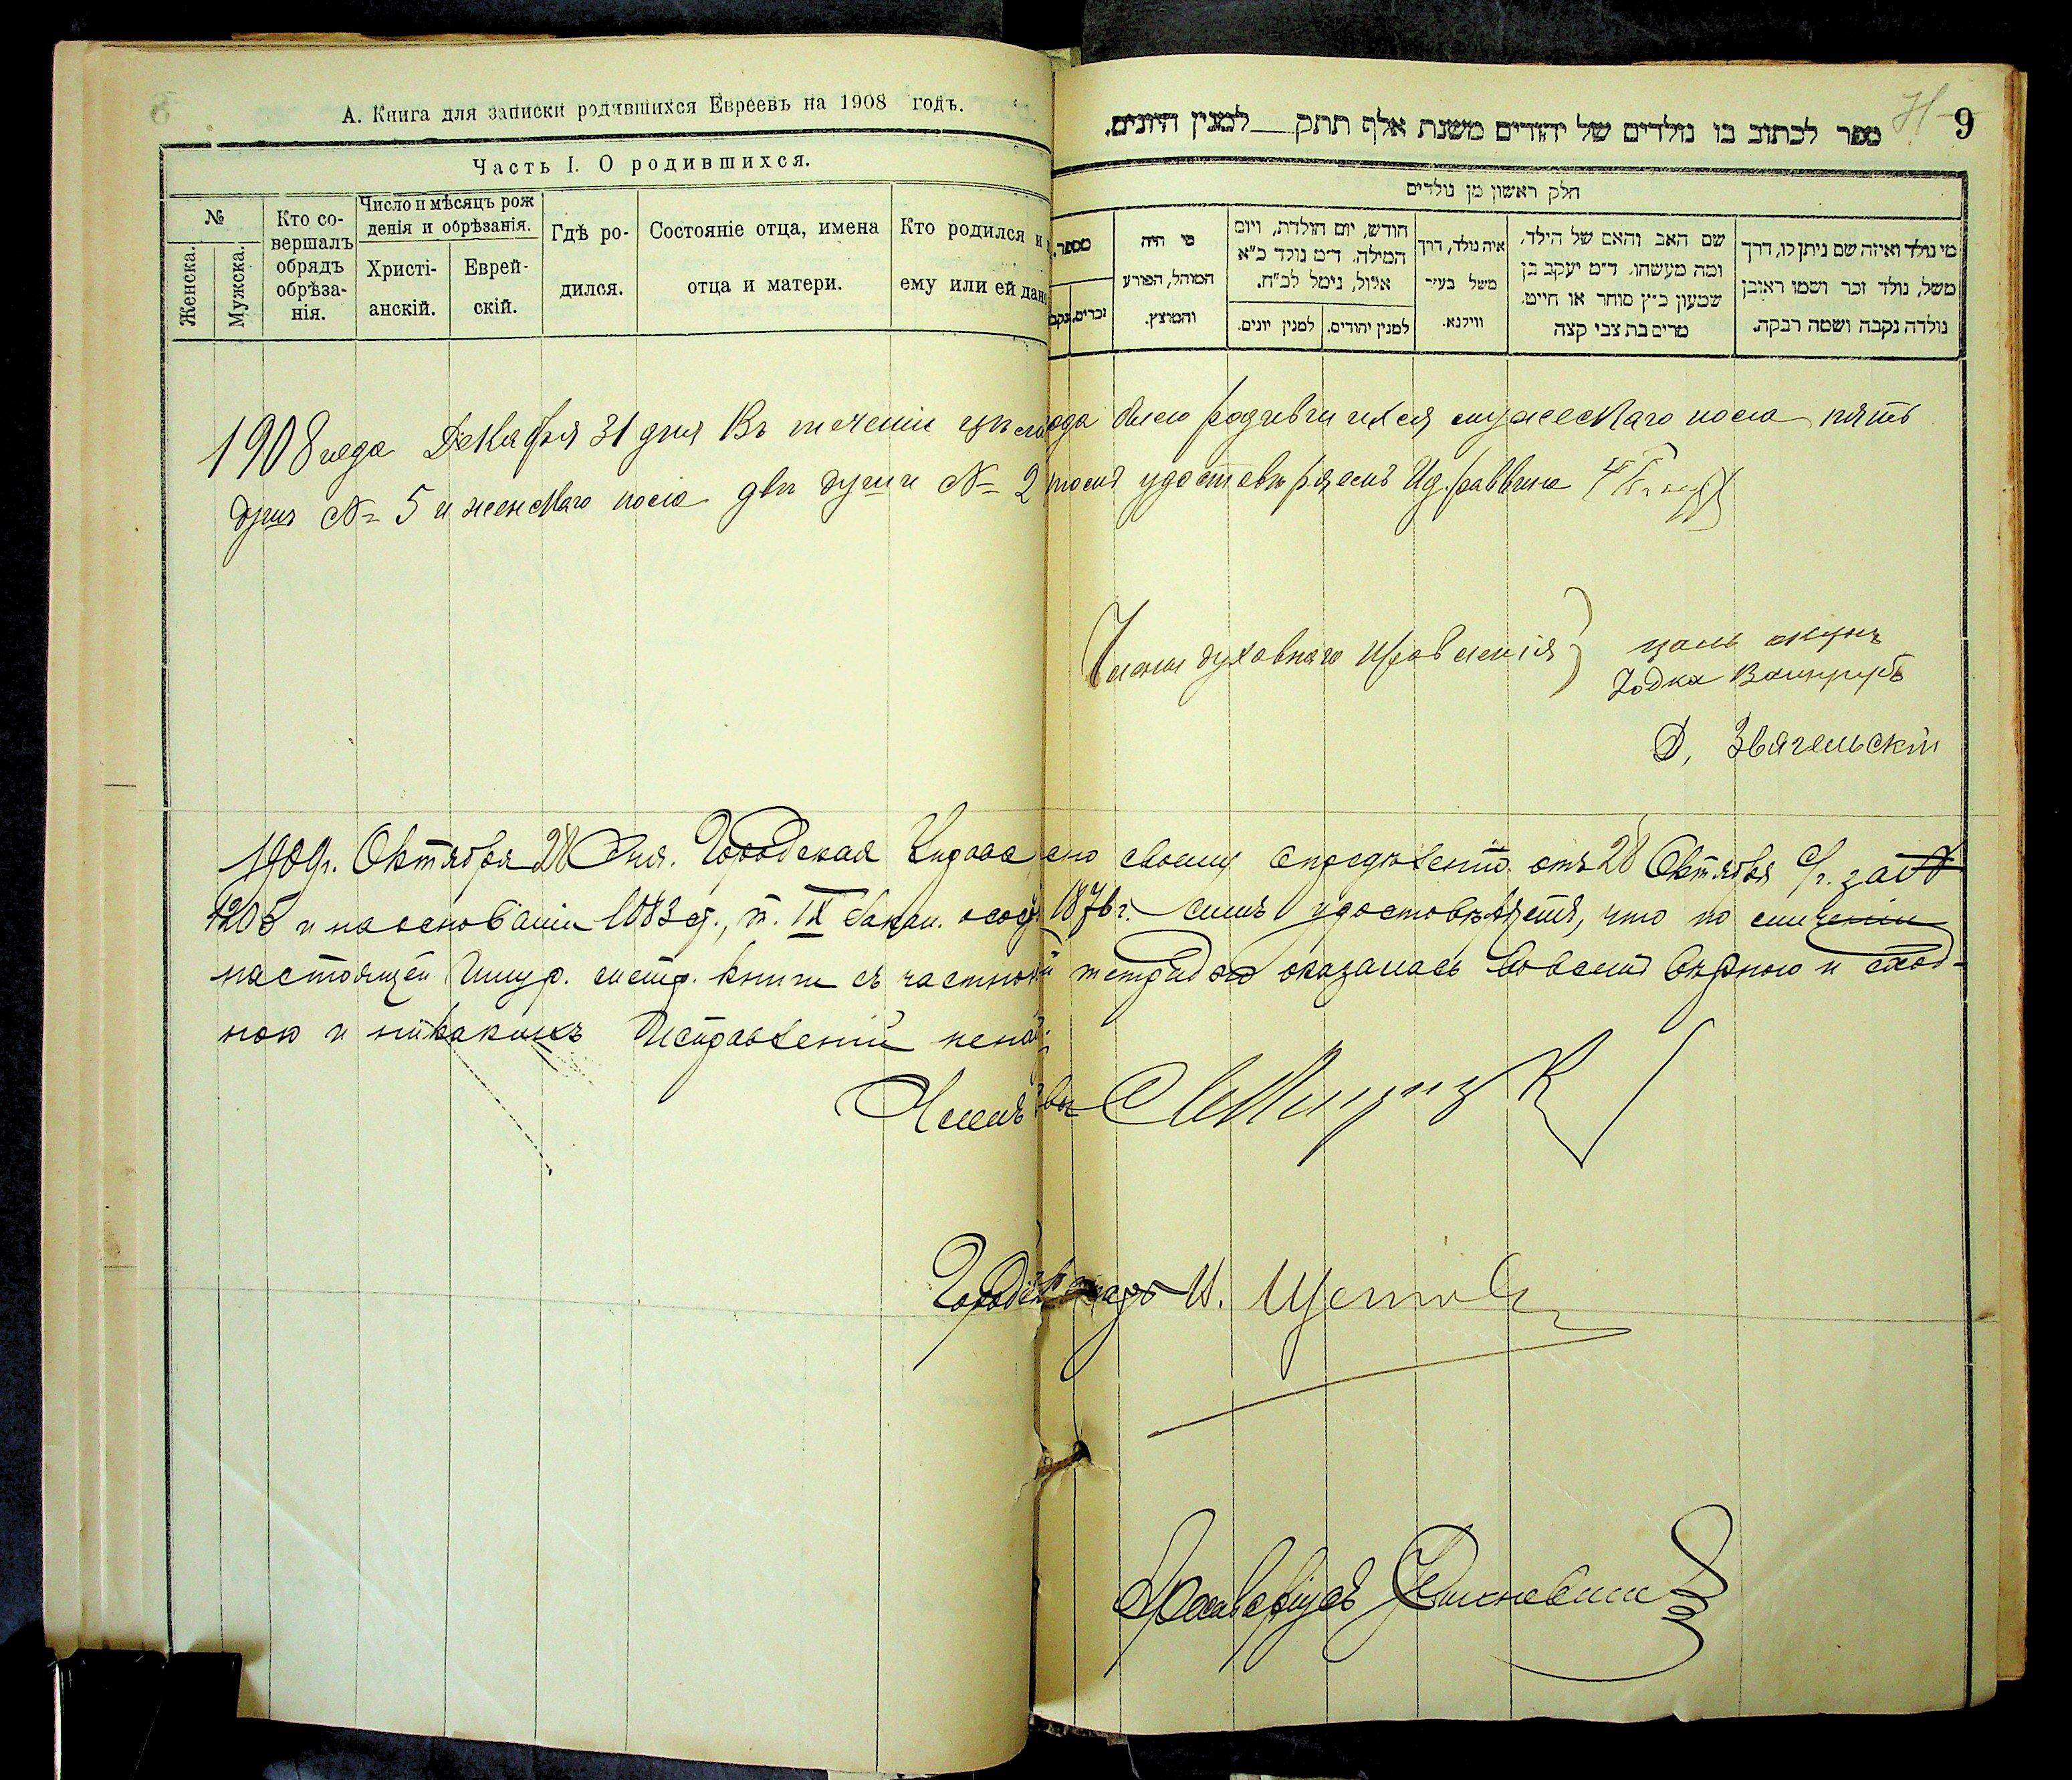 А. Книга для записки родившихся Евреевъ на 1908 годъ.
Часть I. О родившихся.
№
Женска.
Мужска.
Кто совершалъ обрядъ обрѣзанія.
Число и мѣсяцъ рожденія и обрѣзанія.
Христіанскій.
Еврейскій.
Гдѣ родился.
Состояніе отца, имена отца и матери.
Кто родился и ему или ей дано
9
ספר לכתוב בו נולדים של יהודים משנת אלף תתק למנין היונים.
חלק ראשון מן נולדים
מספר.
זכרים.
נקב
מי היה המוהל, הפורע והמוצץ.
חודש, יום הולדת, ויום המילה. ד״מ נולד כ״א אלול, נימל לכ״ח.
למנין יונים.
למנין יהודים.
איה נולד, דרך משל בעיר ווילנא.
שם האב והאם של הילד, ומה מעשהו. ד״מ יעקב בן שמעון כ״ץ סוחר או חייט. מרים בת צבי קצה
מי נולד ואיזה שם ניתן לו, דרך משל, נולד זכר ושמו ראובן נולדה נקבה ושמה רבקה.
1908 года Декабря 31 дня Въ теченіи цѣлаго года было родившихся мужескаго пола пять
душъ № 5 и женскаго пола двѣ души № 2 удостовѣряемъ И.д. раввина
Члены духовнаго правленія
Іодка
Д, Звягельскій
1909г. Октября 28 Дня. Городская Управа по своему опредѣленію отъ 28 Октября с/г. за №
1205 и на основаніи 1083 ст., т. IX Закон. о сост. 1876 г. симъ удостовѣряетъ, что по сличеніи
настоящей шнур. метр. книги съ частною тетрадью оказалась во всемъ вѣрною и сход-
ною и никакихъ исправленій
Членъ
И.